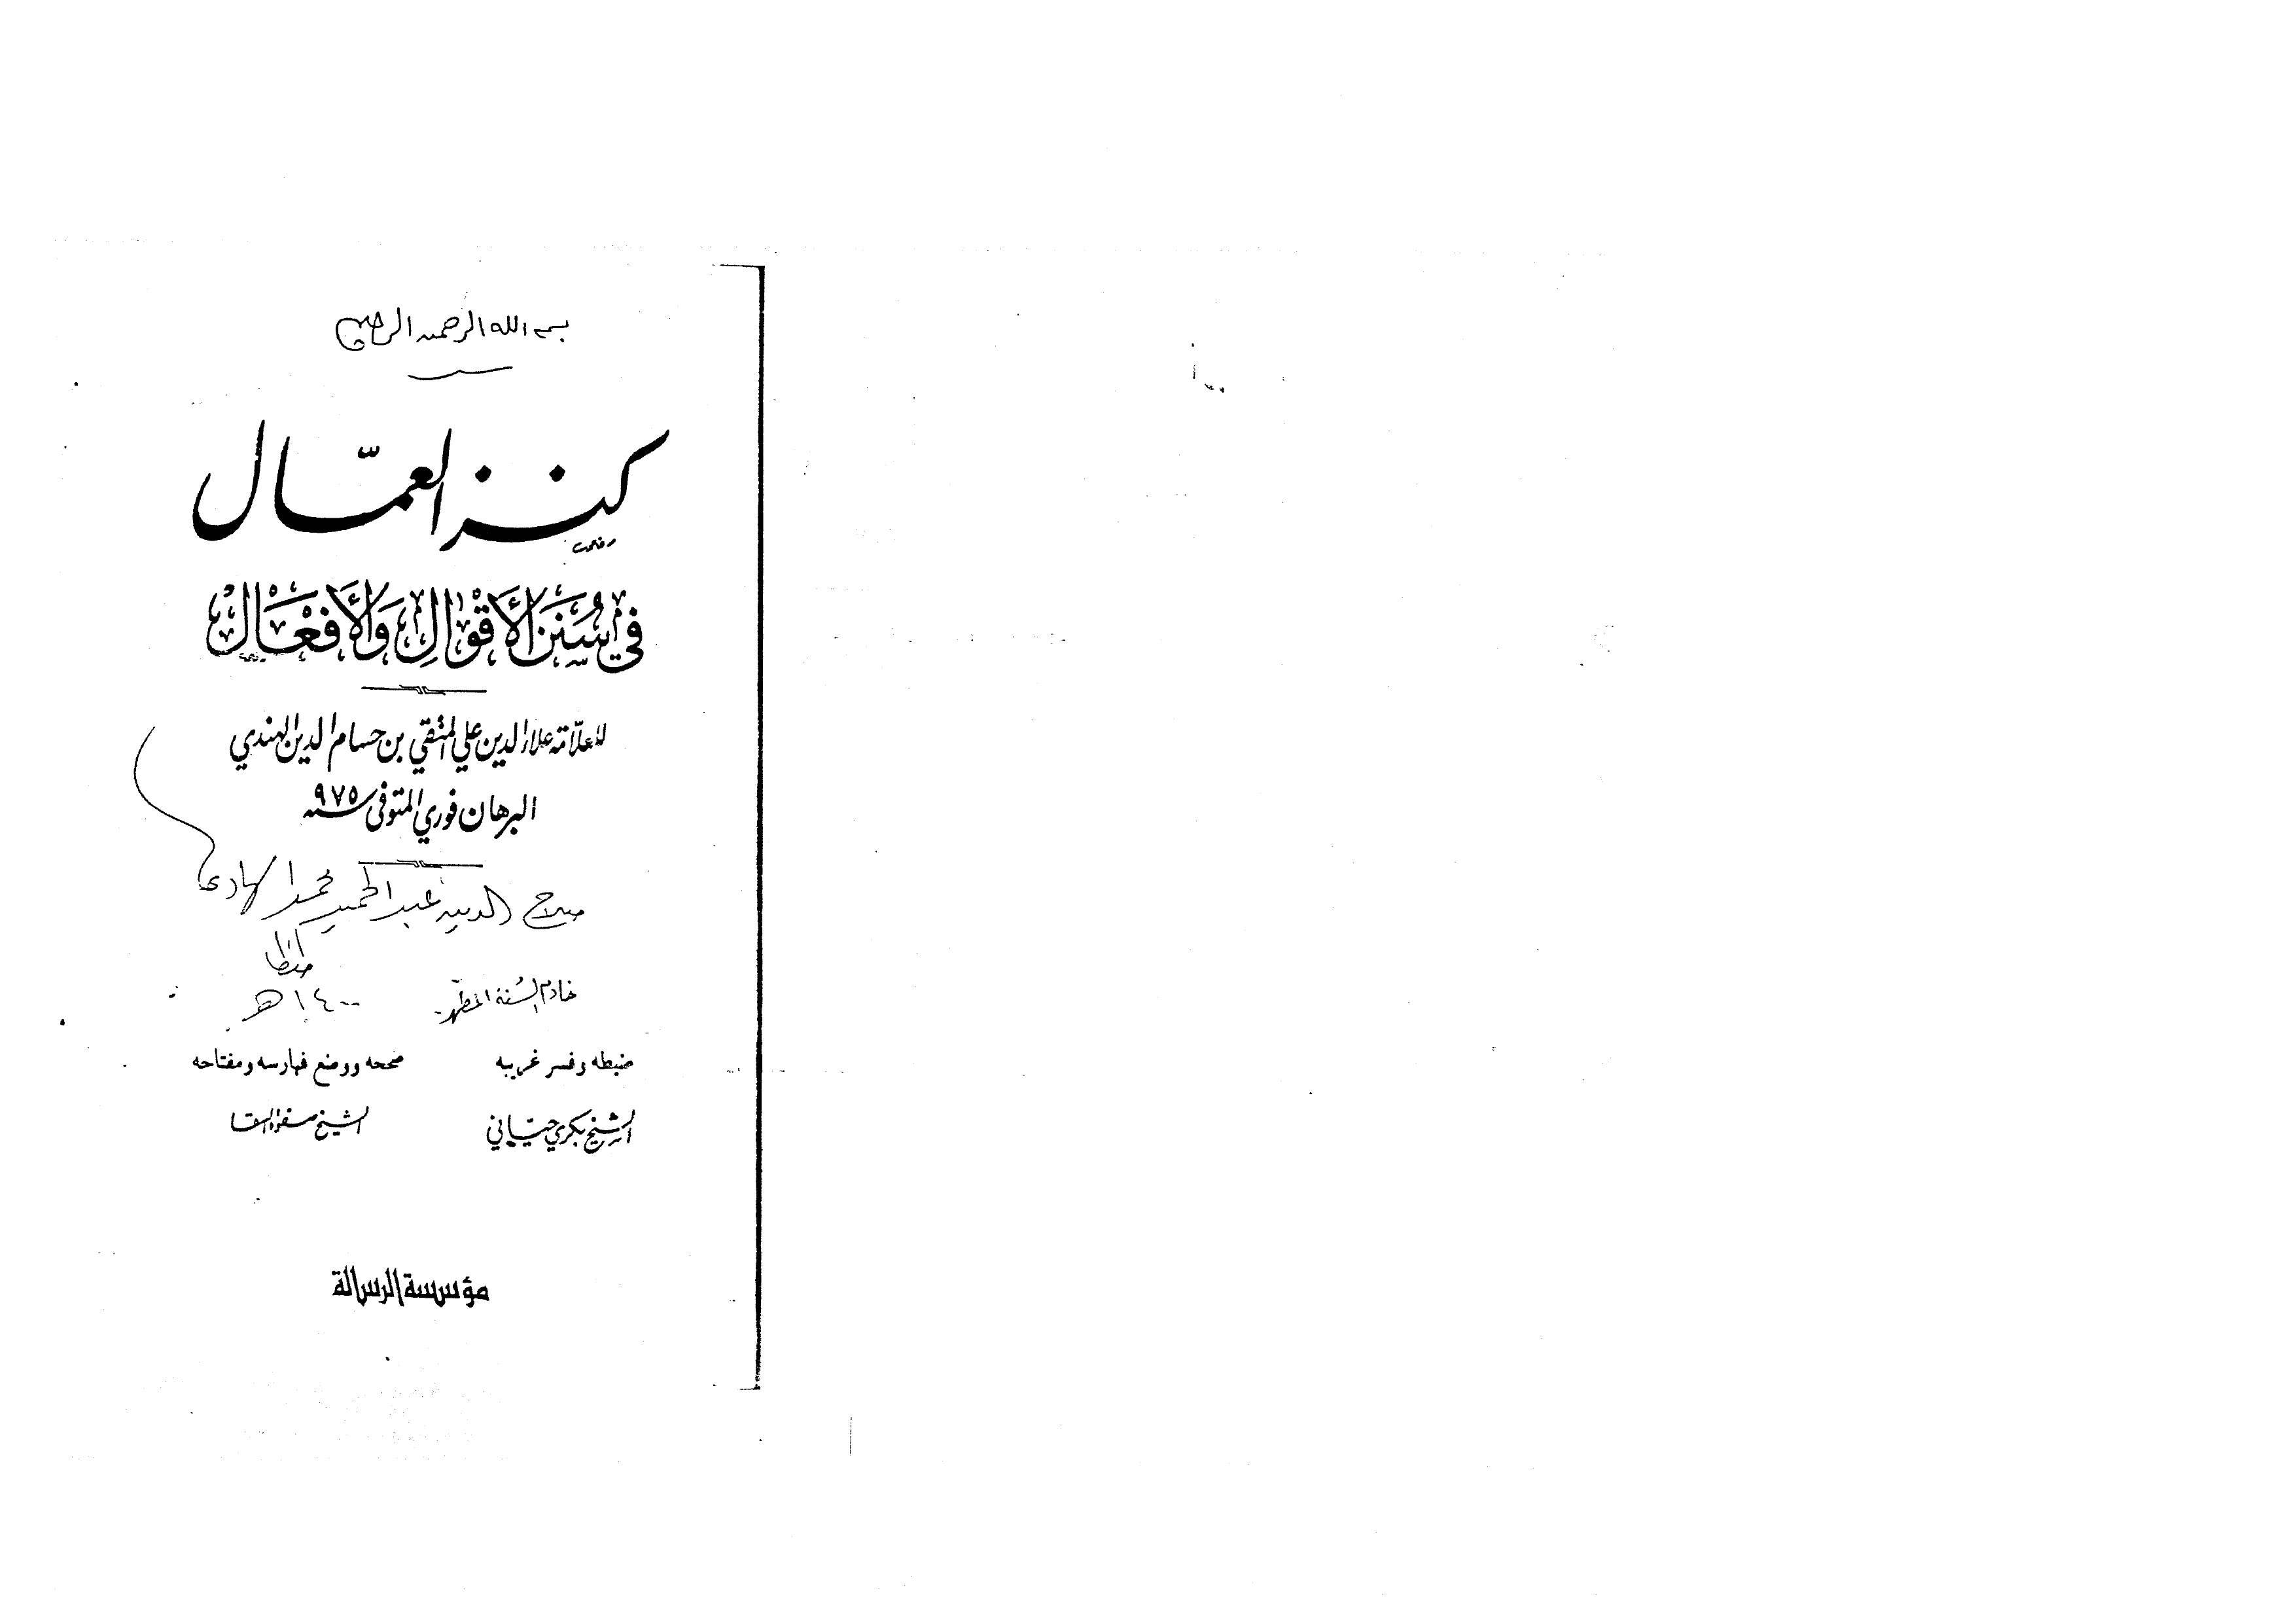 بسم الله الرحمن الرحيم
كنز العمّال
في سُنَنِ الأَقْوَالِ وَالأَفْعَالْ
للعلّامة علاء الدين علي المتقي بن حسام الدين الهندي
البرهان فوري المتوفى سنة ٩٧٥
صلاح الدين عبد الحميد محمد الهادى
طنطا
خادم السُنة المطهّرة
١٤٠٠ هـ
ضبطه وفسر غريبه
صححه ووضع فهارسه ومفتاحه
الشيخ بكري حيّاني
الشيخ صفوة السقا
مؤسسة الرسالة